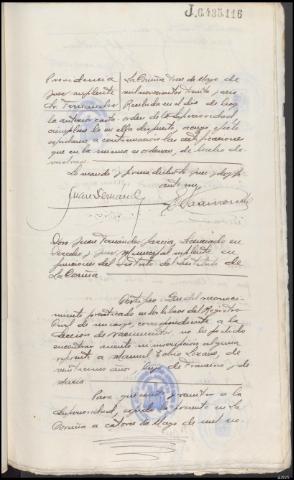 J.6485.116
Providencia
Juez suplente
Sr. Fernández
La Coruña tres de Mayo de
mil novecientos treinta y seis
Recibida en el día de hoy
la anterior carta-orden de la Superioridad,
cúmplase lo en ella dispuesto, a cuyo efecto
a continuación las certificaciones
que en la misma se ordenan, de hecho de-
vuélvase.
Lo mandó y firma dicho Sr. Juez doy fe
ante mí
Juan Fernández
Don Juan Fernández García, Licenciado en
Derecho y Juez Municipal suplente en
funciones del Distrito de Instituto de
La Coruña.
Certifico: Que del reconoci-
miento practicado en los libros del Registro
Civil de mi cargo, correspondiente a la
Sección de nacimientos no ha podido
encontrar inscripción alguna
referente a Manuel Lozano, de
años, hijo de Francisco y de
María
Para que conste y remitir a la
Superioridad, expido la presente en La
Coruña a catorce de Mayo de mil no-